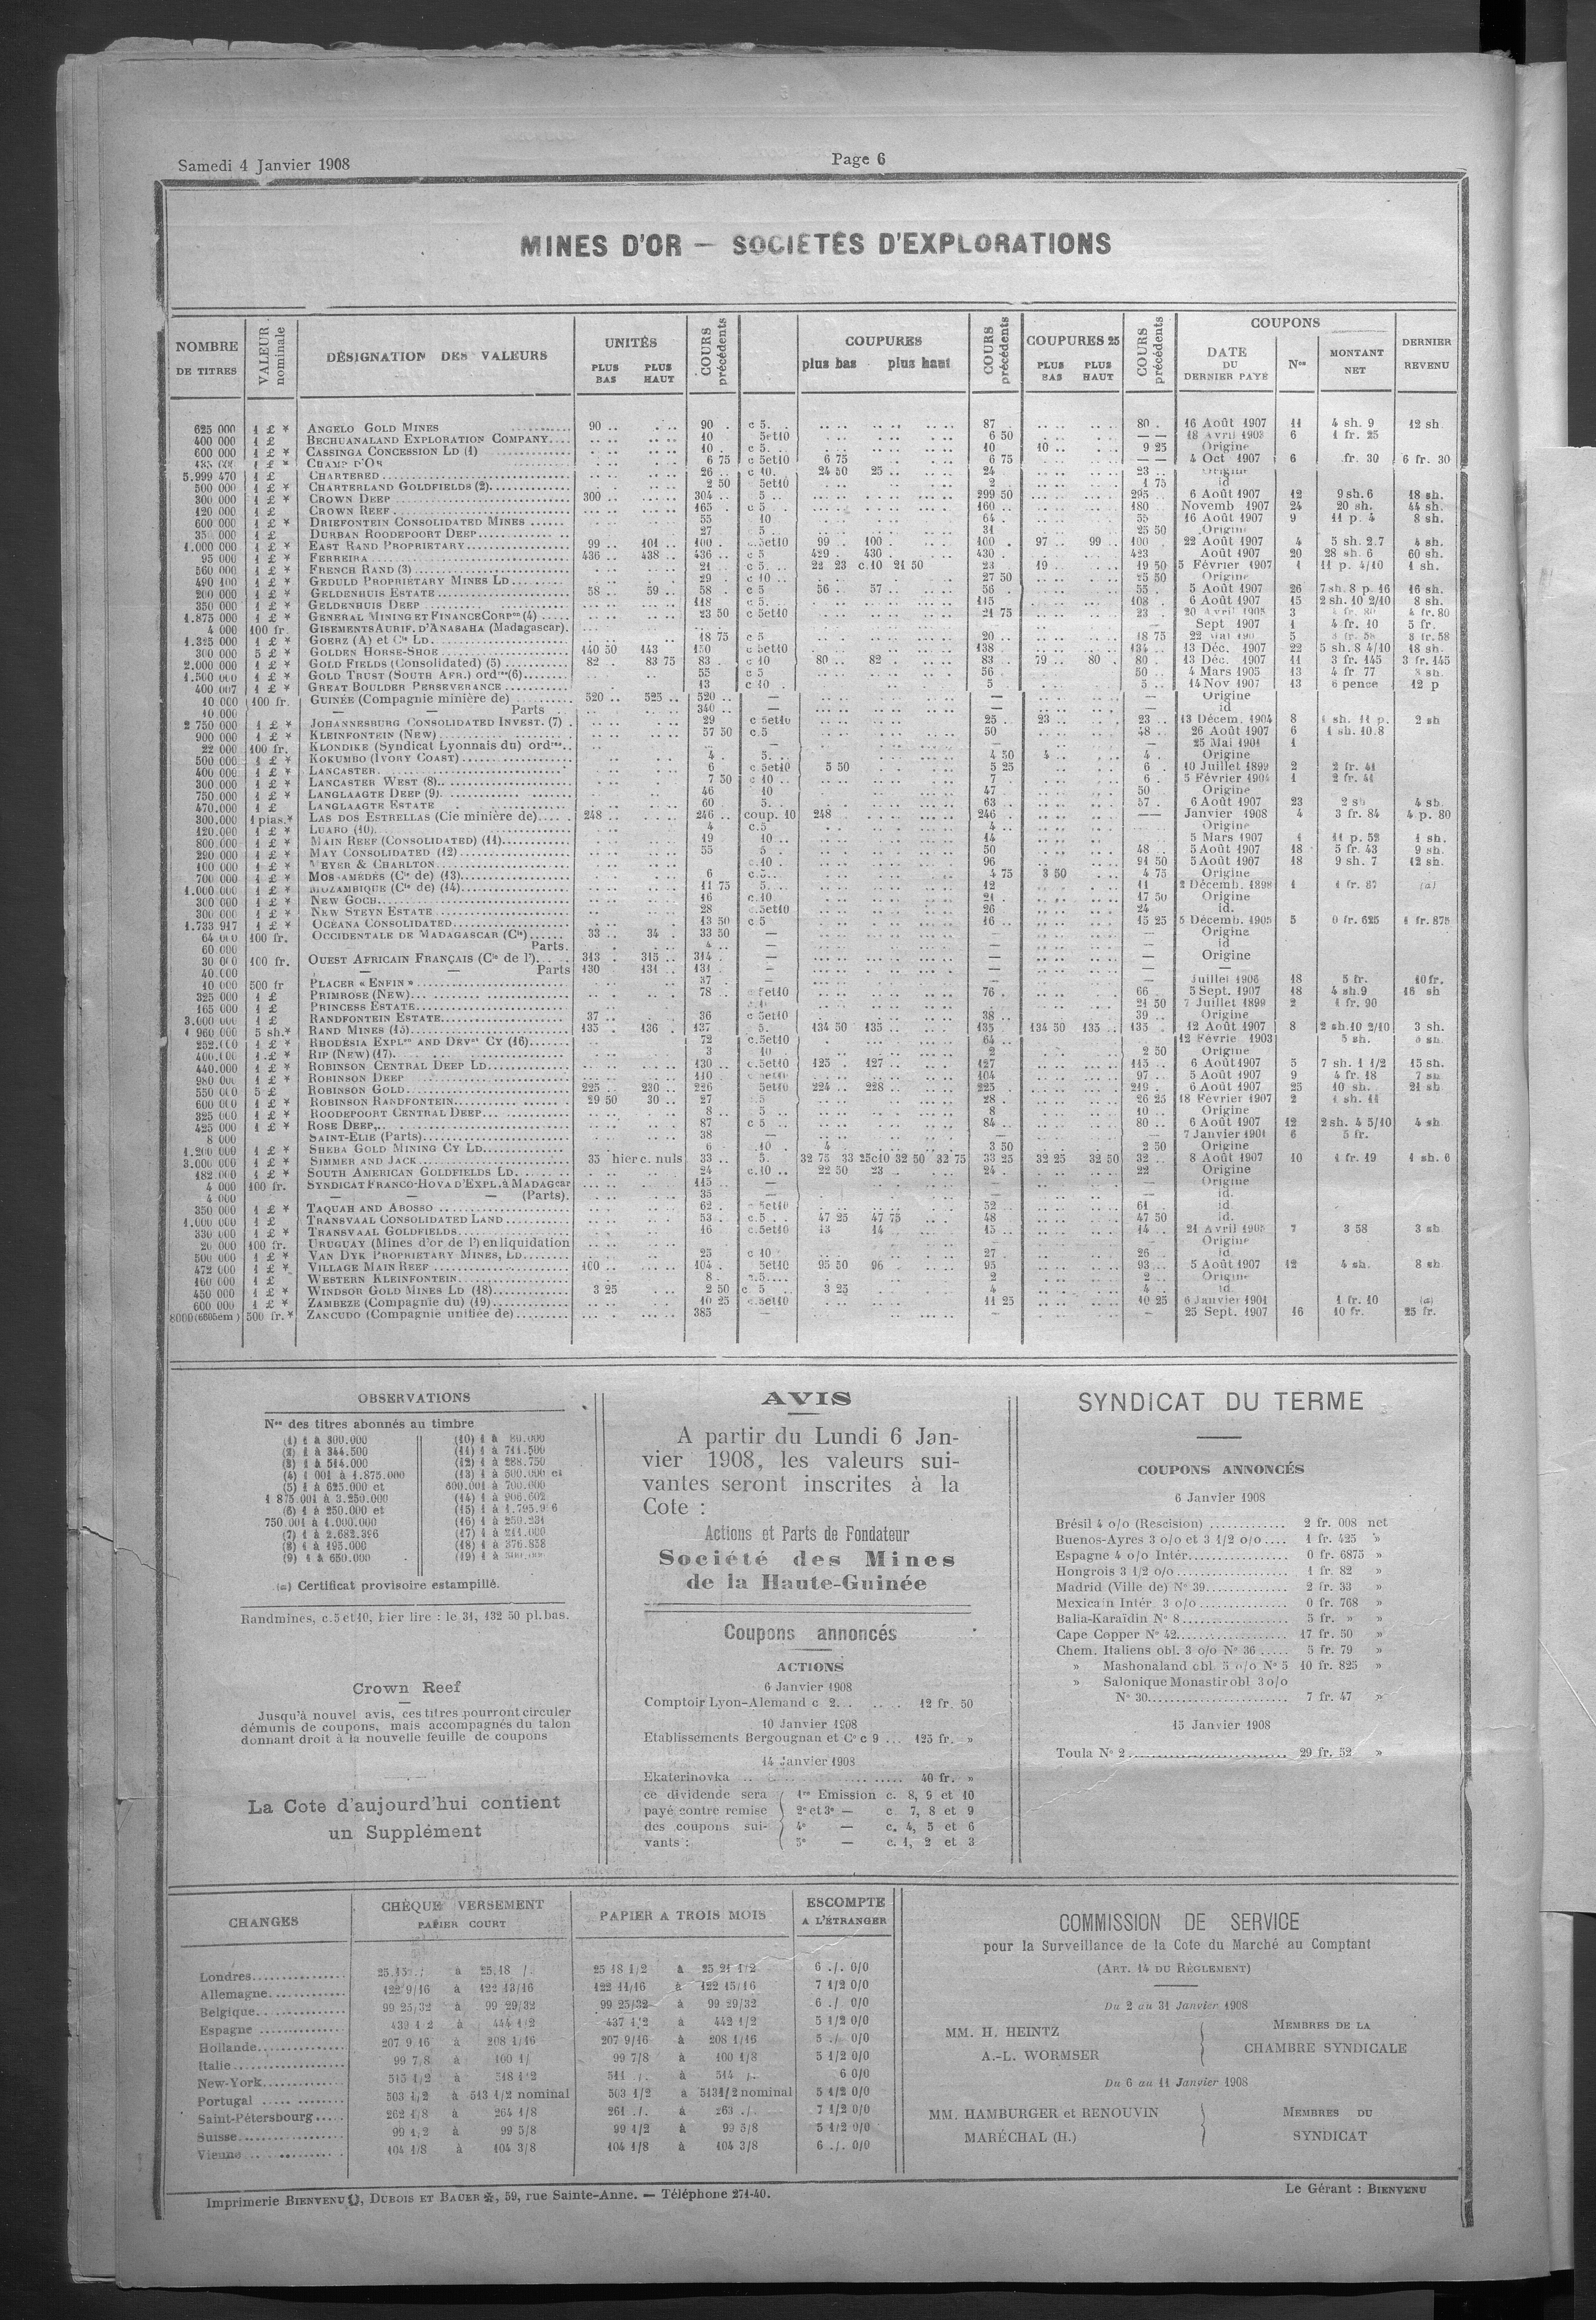 Samedi 4 Janvier 1908
Page 6
MINES D'OR — SOCIÉTÉS D'EXPLORATIONS
NOMBRE DE TITRES
VALEUR nominale
DÉSIGNATION DES VALEURS
UNITÉS
PLUS BAS PLUS HAUT
COURS précédents
COUPURES
plus bas plus haut
COURS précédents
COUPURES 25
PLUS BAS PLUS HAUT
COURS précédents
COUPONS
DATE DU DERNIER PAYÉ
Nos
MONTANT NET
DERNIER REVENU
625 000 1 £ * ANGELO GOLD MINES 90 .. 90 . c 5. 87 . 80 . 16 Août 1907 11 4 sh. 9 12 sh.
400 000 1 £ BECHUANALAND EXPLORATION COMPANY.... 10 5et10 6 50 — 18 Avril 1903 6 1 fr. 25
600 000 1 £ * CASSINGA CONCESSION LD (1) 10 . c 5. 10 10 .. 9 25 Origine
1 £ * CHAMP D'OR 6 75 c 5et10 6 75 6 75 — 4 Oct 1907 6 fr. 30 6 fr. 30
5.999 470 1 £ CHARTERED 26 .. c 10. 24 50 25 .. 24 23 .. Origine
500 000 1 £ * CHARTERLAND GOLDFIELDS (2) 2 50 5et10 2 1 75 id
300 000 1 £ * CROWN DEEP 300 .. 304 .. 5 .. 299 50 295 . 6 Août 1907 12 9 sh. 6 18 sh.
120 000 1 £ CROWN REEF 165 . c 5 . 160 .. 180 Novemb 1907 24 20 sh. 44 sh.
600 000 1 £ * DRIEFONTEIN CONSOLIDATED MINES 55 10 64 . 55 16 Août 1907 9 11 p. 4 8 sh.
1 £ DURBAN ROODEPOORT DEEP 27 5 . 31 25 50 Origine
1.000 000 1 £ * EAST RAND PROPRIETARY 99 .. 101 .. 100 . c.5et10 99 . 100 . 100 . 97 .. 99 .. 100 . 22 Août 1907 4 5 sh. 2.7 4 sh.
95 000 1 £ * FERREIRA 436 .. 438 .. 436 .. c 5 429 . 430 . 430 . 423 Août 1907 20 28 sh. 6 60 sh.
560 000 1 £ * FRENCH RAND (3) 21 .. c 5... 22 23 c.10 21 50 23 19 .. 19 50 5 Février 1907 1 11 p. 4/10 1 sh.
490 100 1 £ * GEDULD PROPRIETARY MINES LD 29 . c 10 .. 27 50 25 50 Origine
200 000 1 £ * GELDENHUIS ESTATE 58 .. 59 .. 58 . c 5 56 . 57 .. 56 . 55 . 5 Août 1907 26 7 sh. 8 p. 16 16 sh.
350 000 1 £ * GELDENHUIS DEEP 118 c 5. 115 108 . 6 Août 1907 15 2 sh. 10 2/10 8 sh.
1.875 000 1 £ * GENERAL MINING ET FINANCE CORPon (4) 23 50 c 5et10 21 75 23 . 20 Avril 1905 3 4 fr. 80
4 000 100 fr. GISEMENTS AURIF. D'ANASAHA (Madagascar). — Sept 1907 1 4 fr. 10 5 fr.
1.325 000 1 £ * GOERZ (A) et Cie LD 18 75 c 5 20 .. 18 75 22 Mai 190 5 3 fr. 58 3 fr. 58
300 000 5 £ * GOLDEN HORSE-SHOE 140 50 143 150 c 5et10 138 134 .. 13 Déc. 1907 22 5 sh. 8 4/10 18 sh.
2.000 000 1 £ * GOLD FIELDS (Consolidated) (5) 82 . 83 75 83 . c 10 80 .. 82 . 83 .. 79 .. 80 . 80 . 13 Déc. 1907 11 3 fr. 145 3 fr. 145
1.500 000 1 £ * GOLD TRUST (SOUTH AFR.) ordres (6) 55 c 5 56 . 50 .. 4 Mars 1905 13 4 fr 77
400 007 1 £ * GREAT BOULDER PERSEVERANCE 13 c 10 . 5 5 . 14 Nov 1907 13 6 pence 12 p
10 000 100 fr. GUINÉE (Compagnie minière de) 520 .. 525 .. 520 .. — — — Origine
10.000 — — Parts 340 .. — — — id
2 750 000 1 £ * JOHANNESBURG CONSOLIDATED INVEST. (7) 29 c 5et10 25 . 23 .. 23 .. 13 Décem. 1904 8 1 sh. 11 p. 2 sh
900 000 1 £ * KLEINFONTEIN (NEW) 57 50 c.5 50 48 .. 26 Août 1907 6 1 sh. 10.8
22 000 100 fr. KLONDIKE (Syndicat Lyonnais du) ordres — — 25 Mai 1901 1
500 000 1 £ * KOKUMBO (IVORY COAST) 4 . 5. 4 50 4 4 . Origine
400 000 1 £ * LANCASTER 6 c 5et10 5 50 5 25 6 . 10 Juillet 1899 2 2 fr. 41
300.000 1 £ * LANCASTER WEST (8) 7 50 c 10 .. 7 . 6 . 5 Février 1904 1 2 fr. 41
750.000 1 £ * LANGLAAGTE DEEP (9) 46 10 47 50 Origine
470.000 1 £ LANGLAAGTE ESTATE 60 5. 63 . 57 . 6 Août 1907 23 2 sh 4 sh.
300.000 1 pias.* LAS DOS ESTRELLAS (Cie minière de) 248 .. 246 .. coup. 10 248 246 . — Janvier 1908 4 3 fr. 84 4 p. 80
120.000 1 £ * LUABO (10) 4 c.5 4 .. Origine
800 000 1 £ * MAIN REEF (CONSOLIDATED) (11) 19 10 .. 14 5 Mars 1907 1 11 p. 52 1 sh.
290 000 1 £ * MAY CONSOLIDATED (12) 55 5 . 50 48 .. 5 Août 1907 18 5 fr. 43 9 sh.
100 000 1 £ * MEYER & CHARLTON c.10 . 96 91 50 5 Août 1907 18 9 sh. 7 12 sh.
700 000 1 £ * MOSSAMÉDÈS (Cie de) (13) 6 c.5. 4 75 3 50 4 75 Origine
1.000.000 1 £ * MOZAMBIQUE (Cie de) (14) 11 75 5. 12 11 2 Décemb. 1898 1 1 fr. 87 (a)
300 000 1 £ * NEW GOCH 16 c.10 21 . 17 50 Origine
300 000 1 £ * NEW STEYN ESTATE 28 c.5et10 26 24 id.
1.733 917 1 £ * OCEANA CONSOLIDATED 13 50 c 5 16 .. 15 25 5 Décemb. 1905 5 0 fr. 625 1 fr. 875
64 000 100 fr. OCCIDENTALE DE MADAGASCAR (Cie) 33 .. 34 . 33 50 — — — Origine
60 000 Parts. 4 .. — — — id
30 000 100 fr. OUEST AFRICAIN FRANÇAIS (Cie de l') 313 . 315 .. 314 . — — — Origine
40.000 — — Parts 130 131 .. 131 . — — — —
10 000 500 fr PLACER « ENFIN » 37 . — — — Juillet 1906 18 5 fr. 10 fr.
325 000 1 £ PRIMROSE (NEW) 78 .. 5et10 76 . 66 .. 5 Sept. 1907 18 4 sh. 9 16 sh
165 000 1 £ PRINCESS ESTATE 21 50 7 Juillet 1899 2 1 fr. 90
3.000 000 1 £ RANDFONTEIN ESTATE 37 .. 36 c 5et10 38 .. 39 .. Origine
1 960.000 5 sh.* RAND MINES (15) 135 . 136 . 137 5. 134 50 135 .. 135 134 50 135 .. 135 . 12 Août 1907 8 2 sh. 10 2/10 3 sh.
252.000 1 £ * RHODÉSIA EXPLon AND DEVnt CY (16) 72 c.5et10 64 .. 12 Févrie 1903 5 sh.
400.000 1 £ * RIP (NEW) (17) 3 10 . 2 2 50 Origine
440.000 1 £ * ROBINSON CENTRAL DEEP LD 130 .. c.5et10 125 . 127 .. 127 115 .. 6 Août 1907 5 7 sh. 1 1/2 15 sh.
980 000 1 £ * ROBINSON DEEP 110 .. c 5et10 104 97 .. 5 Août 1907 9 4 fr. 18 7 sh
550 000 5 £ ROBINSON GOLD 225 .. 230 .. 226 5et10 224 .. 228 .. 225 . 219 . 6 Août 1907 25 10 sh. 21 sh
600 000 1 £ * ROBINSON RANDFONTEIN 29 50 30 .. 27 28 . 26 25 18 Février 1907 2 1 sh. 11
325 000 1 £ * ROODEPOORT CENTRAL DEEP 8 .. 5 .. 8 10 .. Origine
425 000 1 £ * ROSE DEEP 87 c 5 .. 84 .. 80 .. 6 Août 1907 12 2 sh. 4 5/10 4 sh
8 000 SAINT-ELIE (Parts) 38 — — 7 Janvier 1901 6 5 fr.
1.200 000 1 £ * SHEBA GOLD MINING CY LD 6 10 . 4 3 50 2 50 Origine
3.000 000 1 £ * SIMMER AND JACK 33 hier c. nuls 33 .. 5. 32 75 33 25 c10 32 50 32 75 33 25 32 25 32 50 32 .. 8 Août 1907 10 1 fr. 19 1 sh. 6
182 000 1 £ * SOUTH AMERICAN GOLDFIELDS LD 24 c.10 .. 22 50 23 . 24 . 22 Origine
4 000 100 fr. SYNDICAT FRANCO-HOVA D'EXPL. à MADAGcar 115 .. — — — Origine
4 000 — — — (Parts). 35 — — — id.
350 000 1 £ * TAQUAH AND ABOSSO 62 . c 5et10 52 .. 61 id.
1.000 000 1 £ TRANSVAAL CONSOLIDATED LAND 53 . c.5 47 25 47 75 48 47 50 id.
330 000 1 £ * TRANSVAAL GOLDFIELDS 16 c.5et10 13 14 15 .. 14 .. 21 Avril 1905 7 3 58 3 sh
20 000 100 fr. URUGUAY (Mines d'or de l') en liquidation — — Origine
500 000 1 £ * VAN DYK PROPRIETARY MINES, LD 25 c 10 27 . 26 .. id
472 000 1 £ * VILLAGE MAIN REEF 100 .. 104 . 5et10 95 50 96 . 95 93 .. 5 Août 1907 12 4 sh. 8 sh
160 000 1 £ WESTERN KLEINFONTEIN 8 . c.5 2 2 .. Origine
450 000 1 £ * WINDSOR GOLD MINES LD (18) 3 25 2 50 c 5 3 25 4 4 . id.
600 000 1 £ * ZAMBEZE (Compagnie du) (19) 10 25 c.5et10 11 25 10 25 6 Janvier 1901 1 fr. 10 (a)
8000 (6605 ém) 500 fr. * ZANCUDO (Compagnie unifiée de) 385 — — — 25 Sept. 1907 16 10 fr. 25 fr.
OBSERVATIONS
Nos des titres abonnés au timbre
(1) 1 à 300.000
(2) 1 à 344.500
(3) 1 à 514.000
(4) 1 001 à 1.875.000
(5) 1 à 625.000 et
1 875.001 à 3.250.000
(6) 1 à 250.000 et
750.001 à 1.000.000
(7) 1 à 2.682.396
(8) 1 à 195.000
(9) 1 à 650.000
(10) 1 à 80.000
(11) 1 à 711.500
(12) 1 à 288.750
(13) 1 à 500.000 et
600.001 à 700.000
(14) 1 à 906.602
(15) 1 à 1.795.9 6
(16) 1 à 250.231
(17) 1 à 211.000
(18) 1 à 376.838
(19) 1 à
(a) Certificat provisoire estampillé.
Randmines, c.5et10, hier lire : le 31, 132 50 pl. bas.
Crown Reef
Jusqu'à nouvel avis, ces titres pourront circuler
démunis de coupons, mais accompagnés du talon
donnant droit à la nouvelle feuille de coupons
La Cote d'aujourd'hui contient
un Supplément
AVIS
A partir du Lundi 6 Jan-
vier 1908, les valeurs sui-
vantes seront inscrites à la
Cote :
Actions et Parts de Fondateur
Société des Mines
de la Haute-Guinée
Coupons annoncés
ACTIONS
6 Janvier 1908
Comptoir Lyon-Alemand c 2... 12 fr. 50
10 Janvier 1908
Etablissements Bergougnan et Ce c 9 ... 125 fr. »
14 Janvier 1908
Ekaterinovka ..... 40 fr. »
ce dividende sera 1re Emission c. 8, 9 et 10
payé contre remise 2e et 3e — c. 7, 8 et 9
des coupons sui- 4e — c. 4, 5 et 6
vants : 5e — c. 1, 2 et 3
SYNDICAT DU TERME
COUPONS ANNONCÉS
6 Janvier 1908
Brésil 4 o/o (Rescision) ............. 2 fr. 008 net
Buenos-Ayres 3 o/o et 3 1/2 o/o .... 1 fr. 425 »
Espagne 4 o/o Intér................. 0 fr. 6875 »
Hongrois 3 1/2 o/o................... 1 fr. 82 »
Madrid (Ville de) No 39.............. 2 fr. 33 »
Mexicain Intér. 3 o/o ............... 0 fr. 768 »
Balia-Karaïdin No 8.................. 5 fr. » »
Cape Copper No 42................... 17 fr. 50 »
Chem. Italiens obl. 3 o/o No 36 ..... 5 fr. 79 »
» Mashonaland obl. 5 o/o No 5 10 fr. 825 »
» Salonique Monastir obl 3 o/o
No 30........................ 7 fr. 47 »
15 Janvier 1908
Toula No 2 ........................... 29 fr. 52 »
CHANGES
CHÈQUE VERSEMENT
PAPIER COURT
PAPIER A TROIS MOIS
ESCOMPTE
A L'ÉTRANGER
Londres 25.15 ./. à 25.18 /. 25 18 1/2 à 25 21 1/2 6 ./. 0/0
Allemagne 122 9/16 à 122 13/16 122 11/16 à 122 15/16 7 1/2 0/0
Belgique 99 25/32 à 99 29/32 99 25/32 à 99 29/32 6 ./ 0/0
Espagne 439 1 2 à 444 1/2 437 1/2 à 442 1/2 5 1/2 0/0
Hollande 207 9 16 à 208 1/16 207 9/16 à 208 1/16 5 ./. 0/0
Italie 99 7/8 à 100 1/ 99 7/8 à 100 1/8 5 1/2 0/0
New-York 515 1/2 à 518 1/2 511 /. à 514 /. 6 0/0
Portugal 503 1/2 à 513 1/2 nominal 503 1/2 à 513 1/2 nominal 5 1/2 0/0
Saint-Pétersbourg 262 1/8 à 264 1/8 261 ./. à 263 ./ 7 1/2 0/0
Suisse 99 1/2 à 99 5/8 99 1/2 à 99 5/8 5 1/2 0/0
Vienne 104 1/8 à 104 3/8 104 1/8 à 104 3/8 6 ./. 0/0
COMMISSION DE SERVICE
pour la Surveillance de la Cote du Marché au Comptant
(ART. 14 DU RÈGLEMENT)
Du 2 au 31 Janvier 1908
MM. H. HEINTZ
A.-L. WORMSER
MEMBRES DE LA
CHAMBRE SYNDICALE
Du 6 au 11 Janvier 1908
MM. HAMBURGER et RENOUVIN
MARÉCHAL (H.)
MEMBRES DU
SYNDICAT
Imprimerie BIENVENU, DUBOIS ET BAUER, 59, rue Sainte-Anne. — Téléphone 271-40.
Le Gérant : BIENVENU